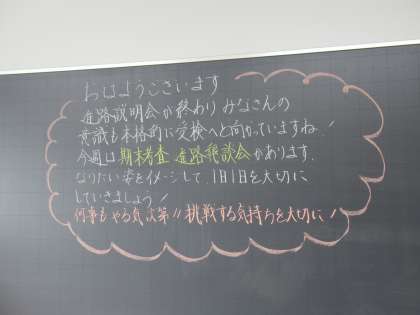 おはようございます
進路説明会が終わり みなさんの
意識も本格的に受検へと向かっていますね。
今週は期末考査 進路懇談会があります。
なりたい姿をイメージして、1日1日を大切に
していきましょう!
何事もやる気次第!! 挑戦する気持ちを大切に!